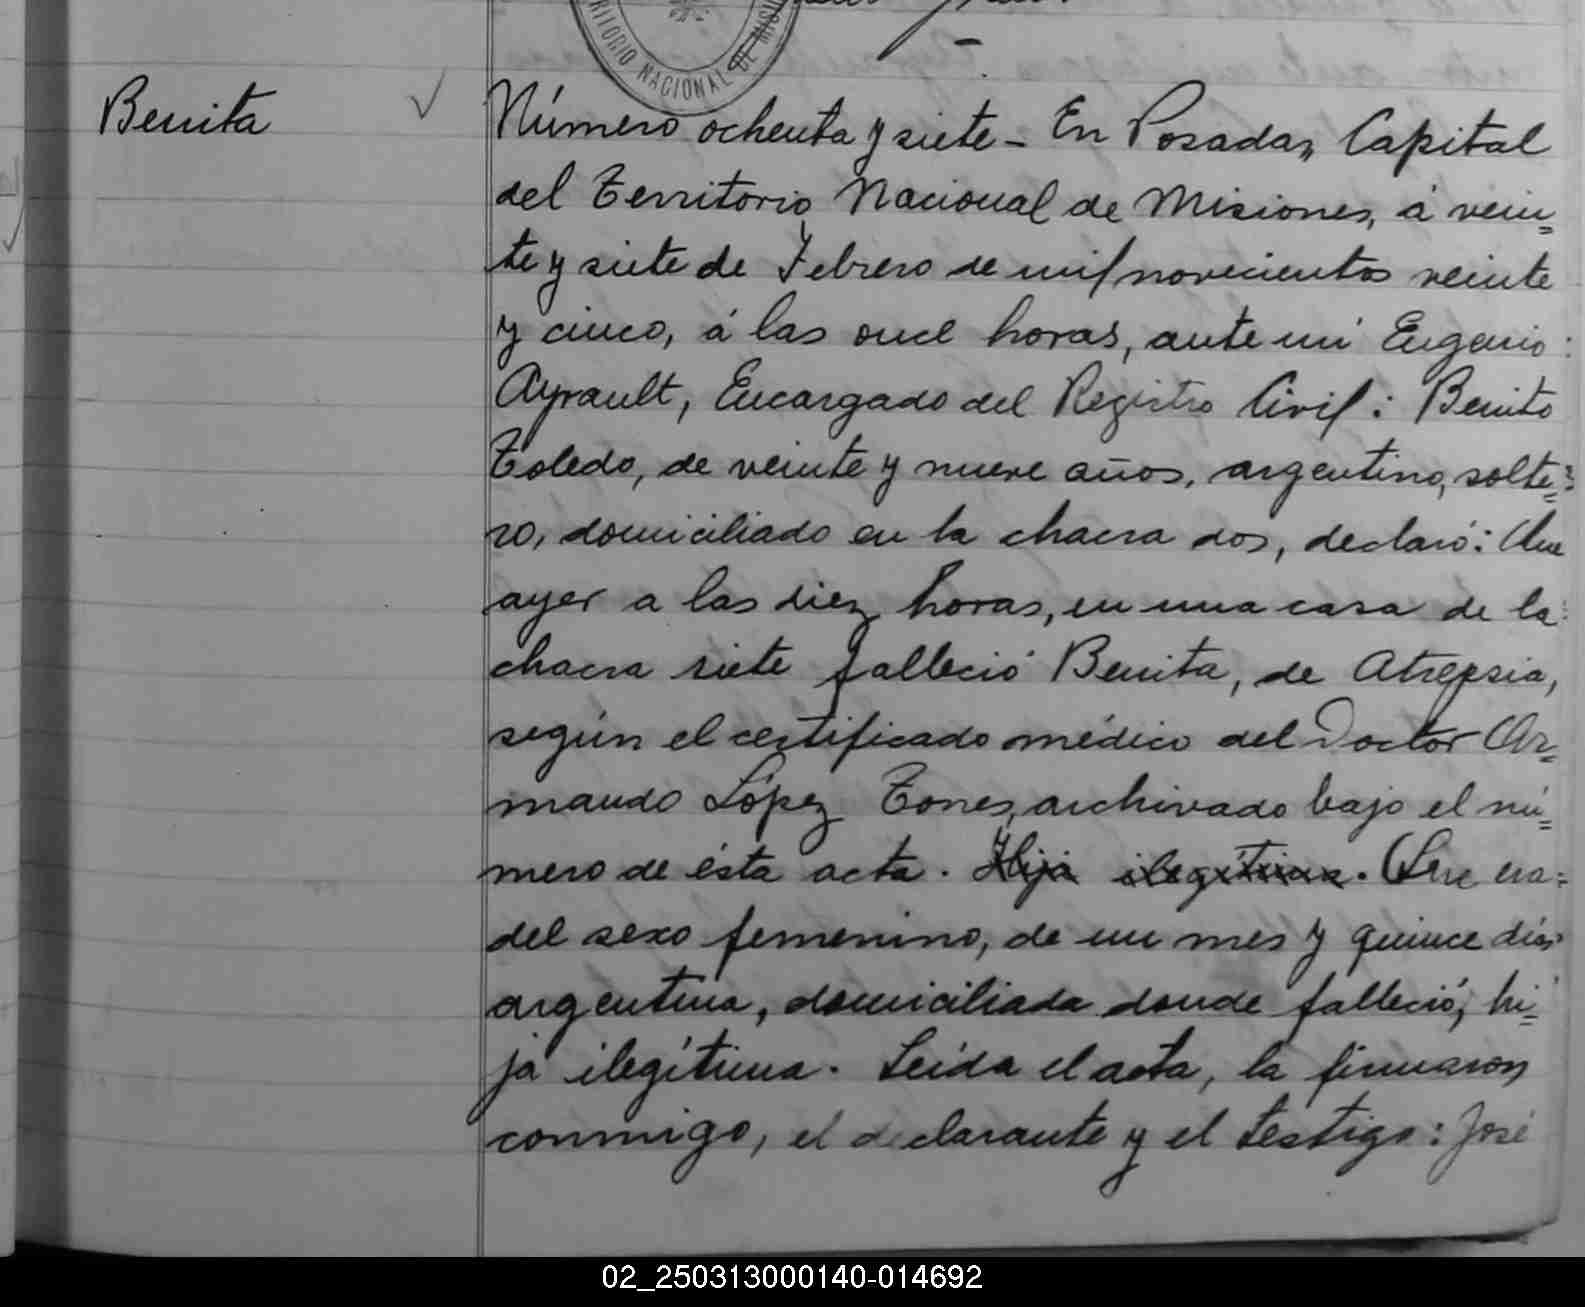 TERRITORIO NACIONAL DE MISIONES
Benita
Número ochenta y siete - En Posadas, Capital
del Territorio Nacional de Misiones, á vein=
te y siete de Febrero de mil novecientos veinte
y cinco, á las once horas, ante mi Eugenio
Ayrault, Encargado del Registro Civil: Benito
Toledo, de veinte y nueve años, argentino, solte=
ro, domiciliado en la chacra dos, declaró: Que
ayer a las diez horas, en una casa de la
chacra siete falleció Benita, de Atrepsia,
según el certificado médico del Doctor Ar=
mando López Torres, archivado bajo el nú=
mero de ésta acta. Hija ilegítima. Que era
del sexo femenino, de un mes y quince días
argentina, domiciliada donde falleció, hi=
ja ilegítima. Leída el acta, la firmaron
conmigo, el declarante y el testigo: José
02_250313000140-014692